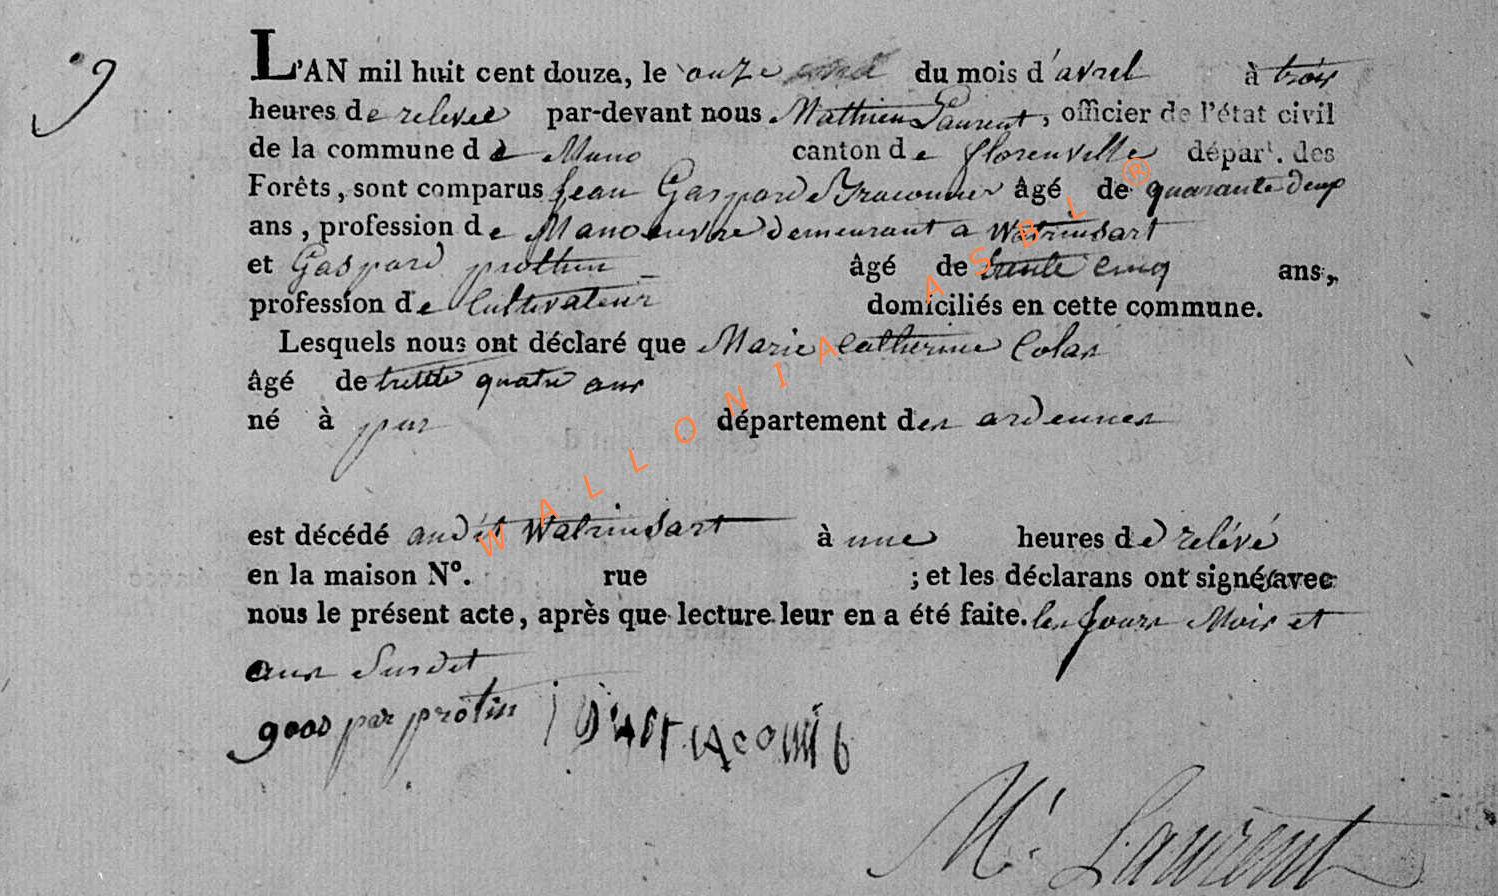 9
L'AN mil huit cent douze, le onze du mois d'avril à trois
heures de relevee par-devant nous Mathieu Laurent, officier de l'état civil
de la commune de Muno canton de florenville départ. des
Forêts, sont comparus Jean Gaspard Braconnier âgé de quarante deux
ans, profession de Manoeuvre demeurant a Watrinsart
et Gaspard prothin âgé de trente cinq ans,
profession de Cultivateur domiciliés en cette commune.
Lesquels nous ont déclaré que Marie Catherine Colas
âgé de trente quatre ans
né à pur département des ardennes
est décédé audit Watrinsart à une heures de relévé
en la maison N°. rue ; et les déclarans ont signé avec
nous le présent acte, après que lecture leur en a été faite. les Jours Mois et
ans Susdit
protin
Mt Laurent
WALLONIA ASBL ®